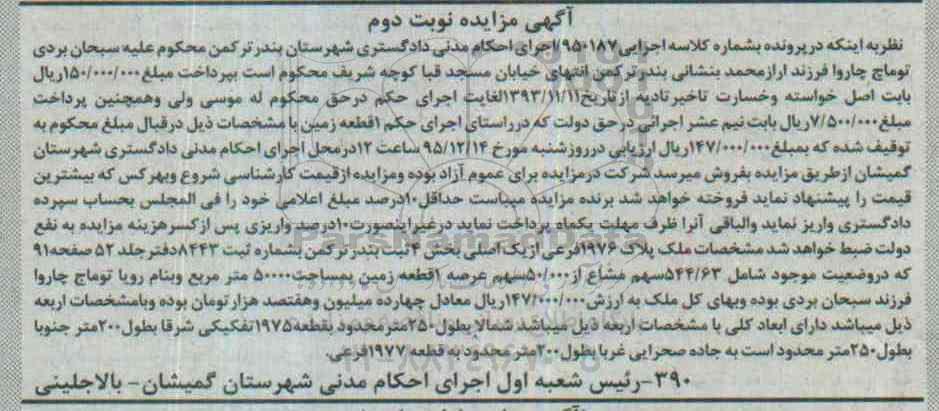 آگهی مزایده نوبت دوم
نظر به اینکه در پرونده بشماره کلاسه اجرایی ۹۵۰۱۸۷/اجرای احکام مدنی دادگستری شهرستان بندر ترکمن محکوم علیه سبحان بردی
توماج چاروا فرزند اراز محمد بنشانی بندر ترکمن انتهای خیابان مسجد قبا کوچه شریف محکوم است بپرداخت مبلغ ۱۵۰/۰۰۰/۰۰۰ ریال
بابت اصل خواسته وخسارت تاخیر تادیه از تاریخ ۱۳۹۳/۱۱/۱۱ لغایت اجرای حکم درحق محکوم له موسی ولی وهمچنین پرداخت
مبلغ ۷/۵۰۰/۰۰۰ ریال بابت نیم عشر اجرائی در حق دولت که در راستای اجرای حکم ۱ قطعه زمین با مشخصات ذیل در قبال مبلغ محکوم به
توقیف شده که بمبلغ ۱۴۷/۰۰۰/۰۰۰ ریال ارزیابی در روز شنبه مورخ ۹۵/۱۲/۱۴ ساعت ۱۲ در محل اجرای احکام مدنی دادگستری شهرستان
گمیشان از طریق مزایده بفروش میرسد شرکت در مزایده برای عموم آزاد بوده ومزایده از قیمت کارشناسی شروع وبهرکس که بیشترین
قیمت را پیشنهاد نماید فروخته خواهد شد برنده مزایده میباست حداقل ۱۰ درصد مبلغ اعلامی خود را فی المجلس بحساب سپرده
دادگستری واریز نماید والباقی آنرا ظرف مهلت یکماه پرداخت نماید در غیر اینصورت ۱۰ درصد واریزی پس از کسر هزینه مزایده به نفع
دولت ضبط خواهد شد مشخصات ملک پلاک ۱۹۷۶ فرعی از یک اصلی بخش ۴ ثبت بندر ترکمن بشماره ثبت ۸۴۴۳ دفتر جلد ۵۲ صفحه ۹۱
که در وضعیت موجود شامل ۵۴۴/۶۳ سهم مشاع از ۵۰/۰۰۰ سهم عرصه ۱ قطعه زمین بمساحت ۵۰۰۰۰ متر مربع وبنام رویا توماج چاروا
فرزند سبحان بردی بوده وبهای کل ملک به ارزش ۱۴۷/۰۰۰/۰۰۰ ریال معادل چهارده میلیون وهفتصد هزار تومان بوده وبامشخصات اربعه
ذیل میباشد دارای ابعاد کلی با مشخصات اربعه ذیل میباشد شمالا بطول ۲۵۰ متر محدود بقطعه ۱۹۷۵ تفکیکی شرقا بطول ۲۰۰ متر جنوبا
بطول ۲۵۰ متر محدود است به جاده صحرایی غربا بطول ۲۰۰ متر محدود به قطعه ۱۹۷۷ فرعی.
۳۹۰-رئیس شعبه اول اجرای احکام مدنی شهرستان گمیشان- بالاجلینی
ParsNamadData